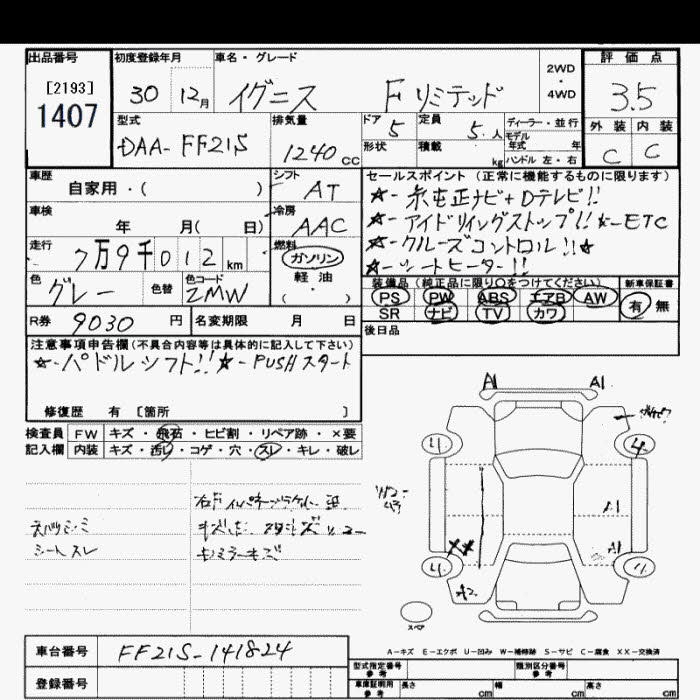 出品番号
[2193]
1407
初度登録年月
30 12月
車名・グレード
イグニス Fリミテッド
2WD
・
4WD
評価点
3.5
外装 内装
C C
型式
DAA-FF21S
排気量
1240cc
ドア
5
定員
5人
形状
積載
kg
ディーラー・並行
モデル
年式 年
ハンドル 左・右
車歴
自家用・( )
シフト
AT
車検
年 月( 日)
冷房
AAC
走行
7万9千012km
燃料
ガソリン
軽油
( ・ )
色
グレー
色替
色コード
ZMW
セールスポイント (正常に機能するものに限ります)
★-純正ナビ+Dテレビ!!
★-アイドリングストップ!! ★-ETC
★-クルーズコントロール!!★
★-シートヒーター!!
装備品 (純正品に限り○をつけてください)
PS PW ABS エアB AW
SR ナビ TV カワ
新車保証書
有 無
R券 9030円
名変期限 月 日
後日品
注意事項申告欄(不具合内容等は具体的に記入して下さい)
★-パドルシフト!! ★-PUSHスタート
修復歴 有 [箇所 ]
検査員 FW キズ・飛石・ヒビ割・リペア跡・×要
記入欄 内装 キズ・汚レ・コゲ・穴・スレ・キレ・破レ
A1 A1
A1
A1
XX
A2
シートスレ
スペア
A-キズ E-エクボ U-凹み W-補修跡 S-サビ C-腐食 XX-交換済
車台番号 FF21S-141824
登録番号
型式指定番号
参考
類別区分番号
参考
車庫証明用
参考
長さ cm 幅 cm 高さ cm